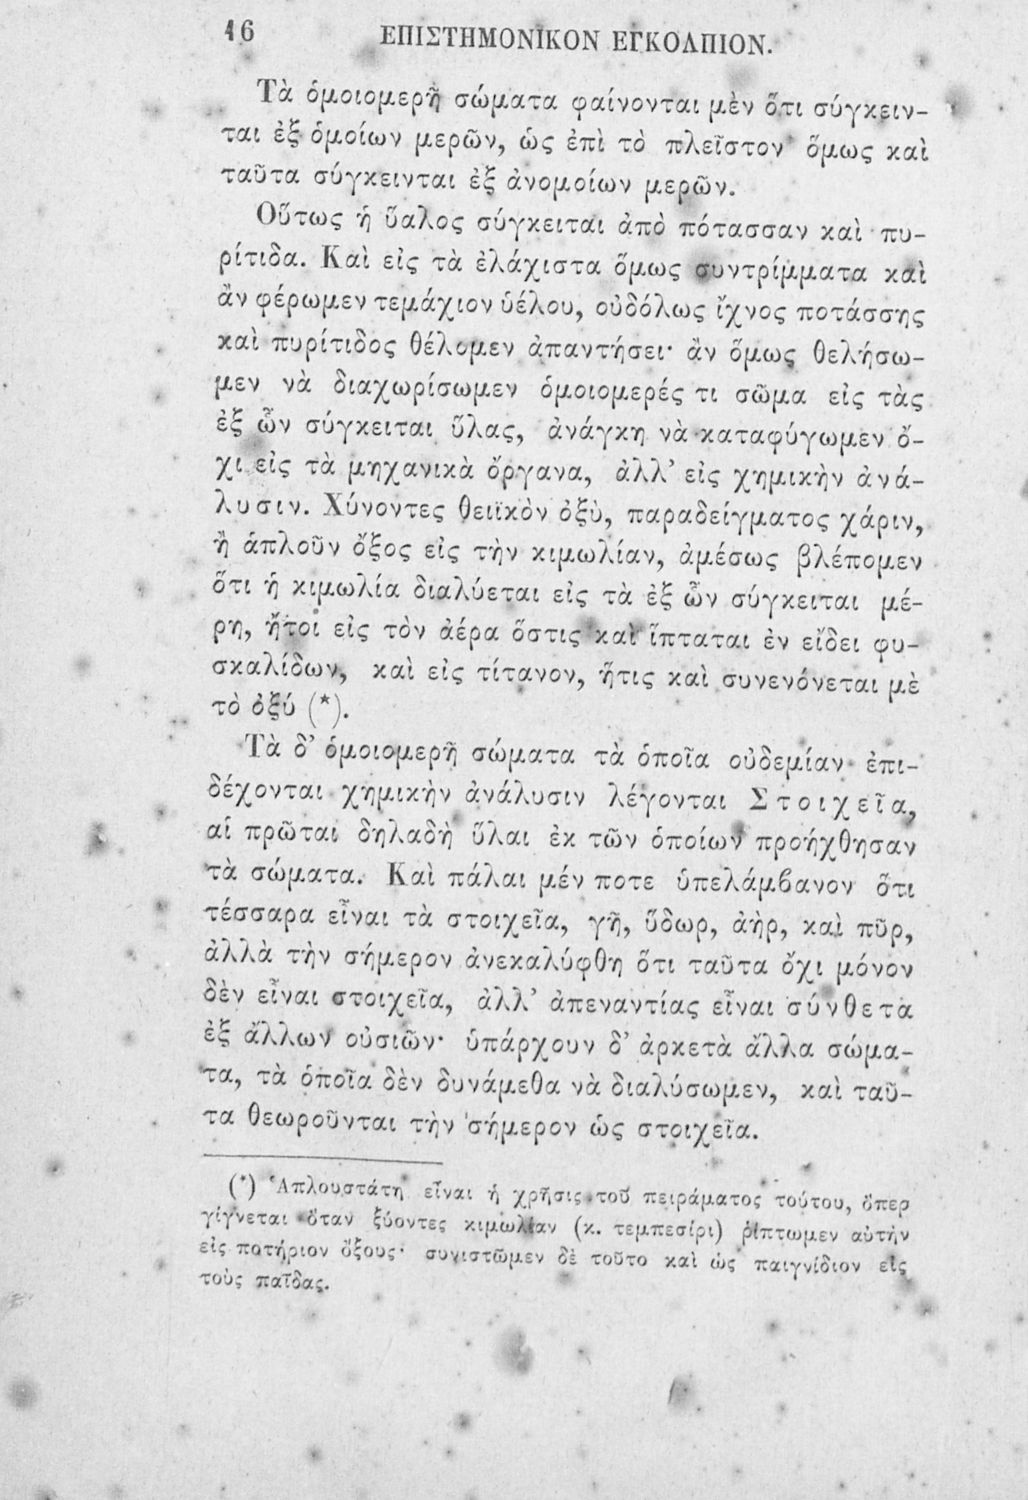 16 ΕΠΙΣΤΗΜΟΝΙΚΟΝ ΕΓΚΟΛΠΙΟΝ.
Τὰ ὁμοιομερῆ σώματα φαίνονται μὲν ὅτι σύγκειν-
ται ἐξ ὁμοίων μερῶν, ὡς ἐπὶ τὸ πλεῖστον· ὅμως καὶ
ταῦτα σύγκεινται ἐξ ἀνομοίων μερῶν.
Οὕτως ἡ ὕαλος σύγκειται ἀπὸ πότασσαν καὶ πυ-
ρίτιδα. Καὶ εἰς τὰ ἐλάχιστα ὅμως συντρίμματα καὶ
ἂν φέρωμεν τεμάχιον ὑέλου, οὐδόλως ἴχνος ποτάσσης
καὶ πυρίτιδος θέλομεν ἀπαντήσει· ἂν ὅμως θελήσω-
μεν νὰ διαχωρίσωμεν ὁμοιομερές τι σῶμα εἰς τὰς
ἐξ ὧν σύγκειται ὕλας, ἀνάγκη νὰ καταφύγωμεν ὄ-
χι εἰς τὰ μηχανικὰ ὄργανα, ἀλλ' εἰς χημικὴν ἀνά-
λυσιν. Χύνοντες θειϊκὸν ὀξὺ, παραδείγματος χάριν,
ἢ ἁπλοῦν ὄξος εἰς τὴν κιμωλίαν, ἀμέσως βλέπομεν
ὅτι ἡ κιμωλία διαλύεται εἰς τὰ ἐξ ὧν σύγκειται μέ-
ρη, ἤτοι εἰς τὸν ἀέρα ὅστις καὶ ἵπταται ἐν εἴδει φυ-
σκαλίδων, καὶ εἰς τίτανον, ἥτις καὶ συνενόνεται μὲ
τὸ ὀξύ (*).
Τὰ δ' ὁμοιομερῆ σώματα τὰ ὁποῖα οὐδεμίαν ἐπι-
δέχονται χημικὴν ἀνάλυσιν λέγονται Στοιχεῖα,
αἱ πρῶται δηλαδὴ ὕλαι ἐκ τῶν ὁποίων προήχθησαν
τὰ σώματα. Καὶ πάλαι μέν ποτε ὑπελάμβανον ὅτι
τέσσαρα εἶναι τὰ στοιχεῖα, γῆ, ὕδωρ, ἀὴρ, καὶ πῦρ,
ἀλλὰ τὴν σήμερον ἀνεκαλύφθη ὅτι ταῦτα ὄχι μόνον
δὲν εἶναι στοιχεῖα, ἀλλ' ἀπεναντίας εἶναι σύνθετα
ἐξ ἄλλων οὐσιῶν· ὑπάρχουν δ' ἀρκετὰ ἄλλα σώμα-
τα, τὰ ὁποῖα δὲν δυνάμεθα νὰ διαλύσωμεν, καὶ ταῦ-
τα θεωροῦνται τὴν σήμερον ὡς στοιχεῖα.
(*) Ἁπλουστάτη εἶναι ἡ χρῆσις τοῦ πειράματος τούτου, ὅπερ
γίγνεται ὅταν ξύοντες κιμωλίαν (κ. τεμπεσίρι) ῥίπτωμεν αὐτὴν
εἰς ποτήριον ὄξους· συνιστῶμεν δὲ τοῦτο καὶ ὡς παιγνίδιον εἰς
τοὺς παῖδας.